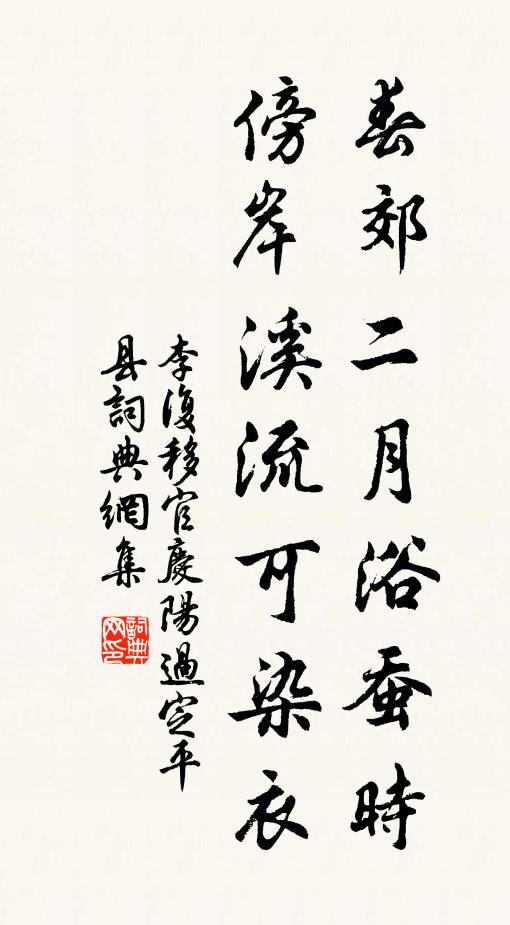 春郊二月浴蚕時
傍岸溪流可染衣
李復移官慶陽過定平
县詞典網集
詞典
网印